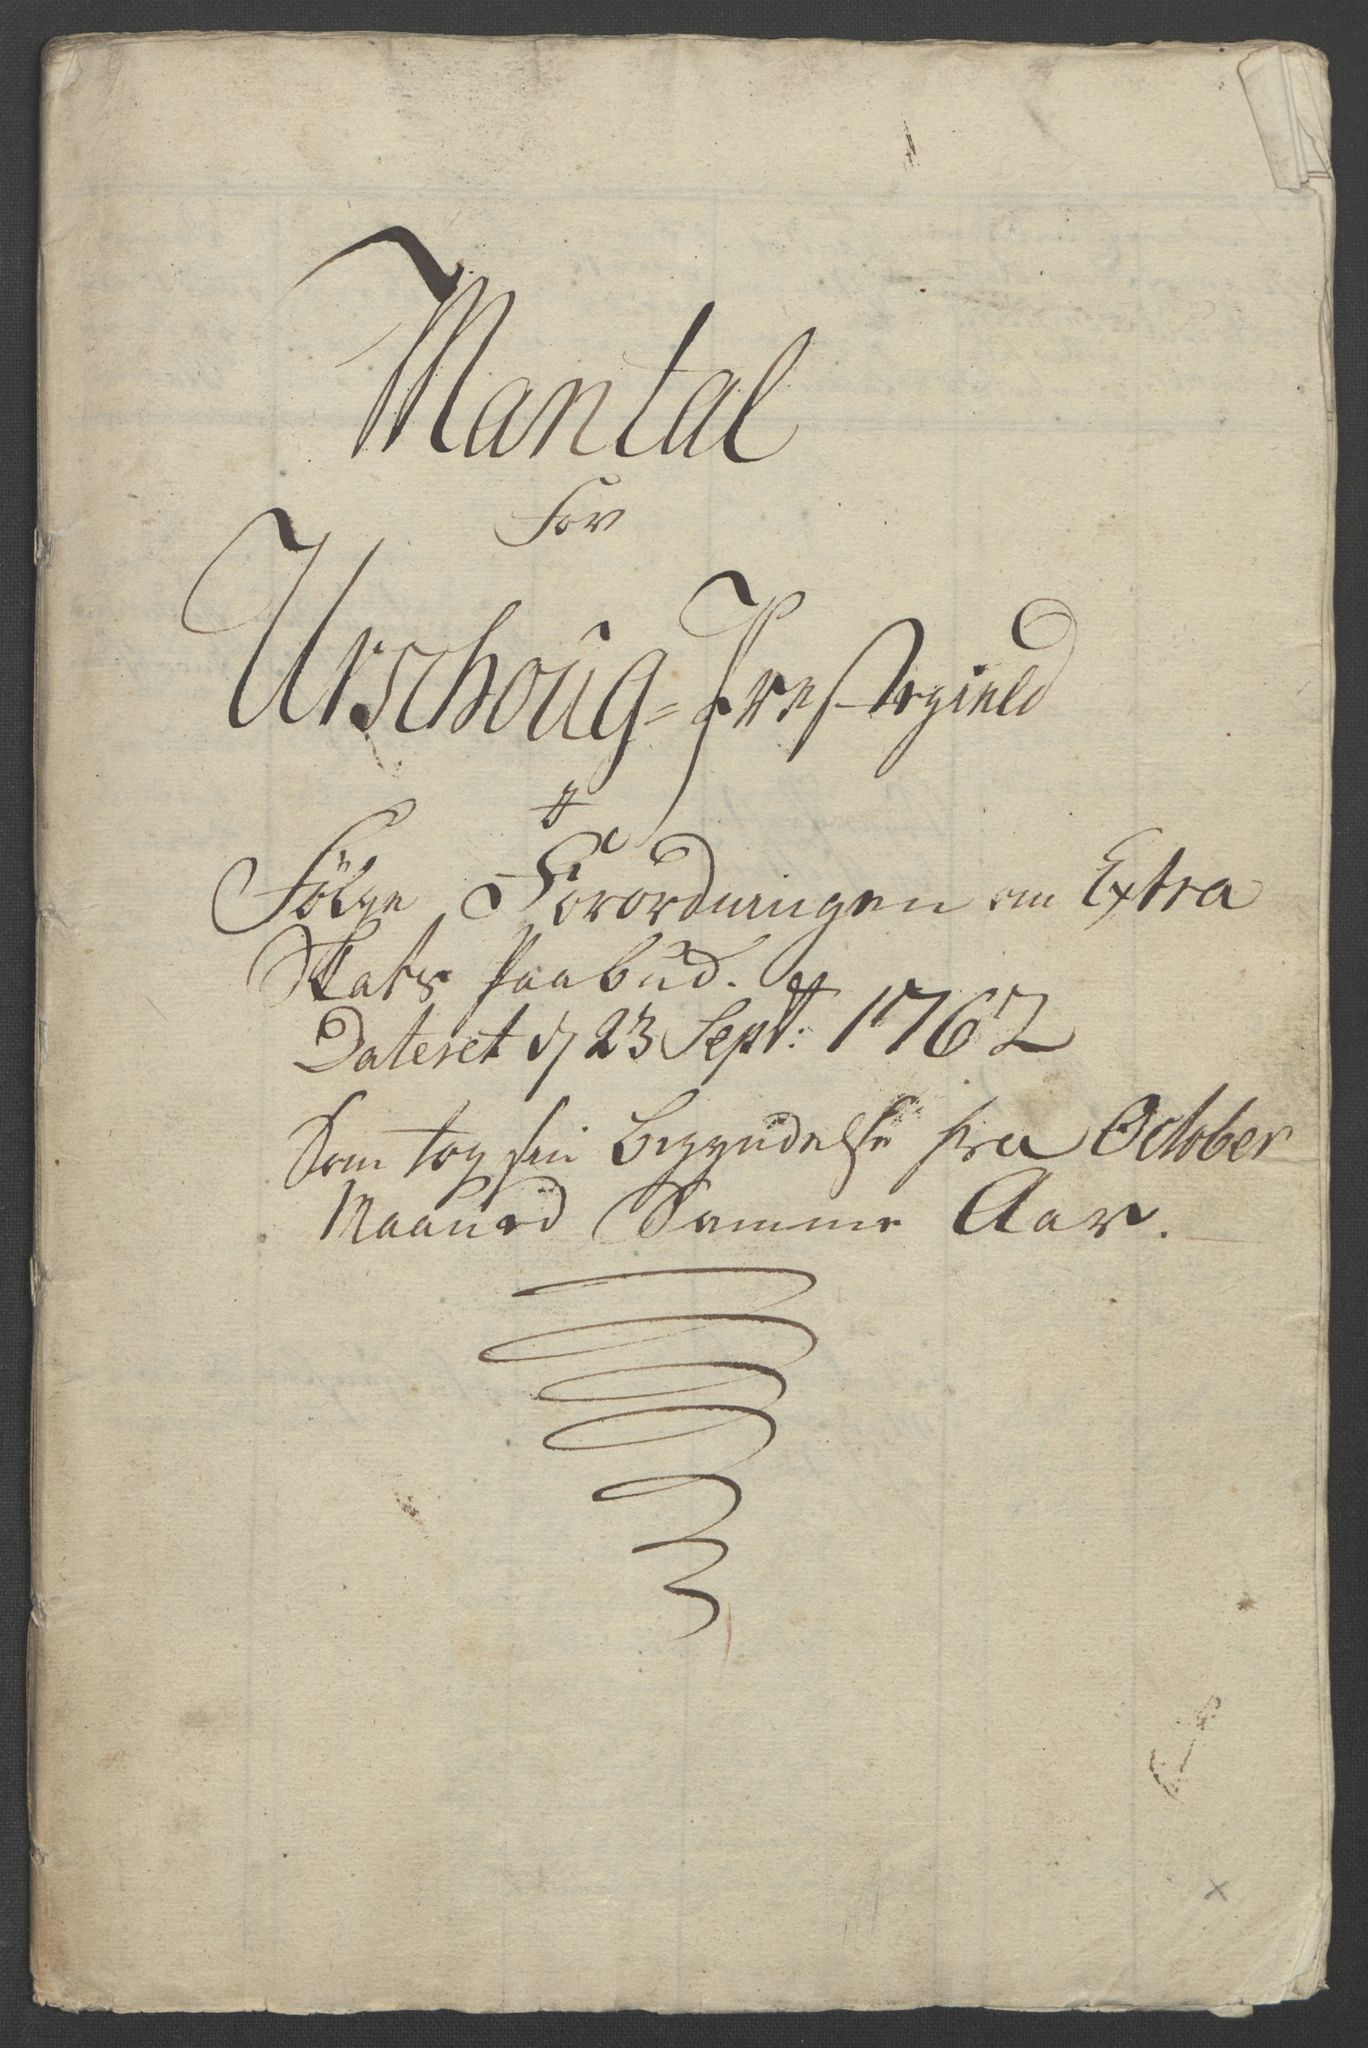 Mantal
For
Urschoüg=Prestegield
Følge Forordningen om Extra
Skats Paabud.
Dateret d 23 Sept: 1762
Som tog sin begyndelse fra October
Maaned Samme Aar.
x